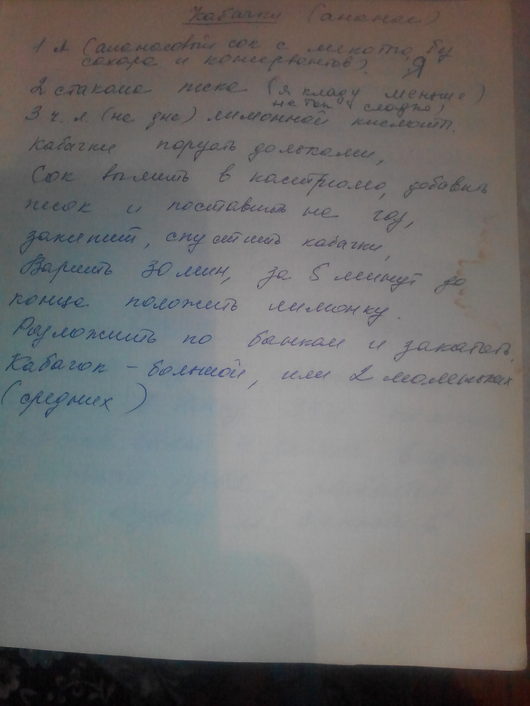 Кабачки (ананас)
1 л (ананасовый сок с мякотью, бу
сахара и консервантов). Я
2 стакана песка (я кладу меньше)
не так сладко)
3 ч. л (на дне) лимонной кислоты.
Кабачки порезать дольками,
Сок вылить в кастрюлю, добавить
песок и поставить на газ,
закипит, спустить кабачки,
Варить 30 мин, за 5 минут до
конца положить лимонку.
Разложить по банкам и закатать.
Кабачок - большой, или 2 маленьких
(средних)